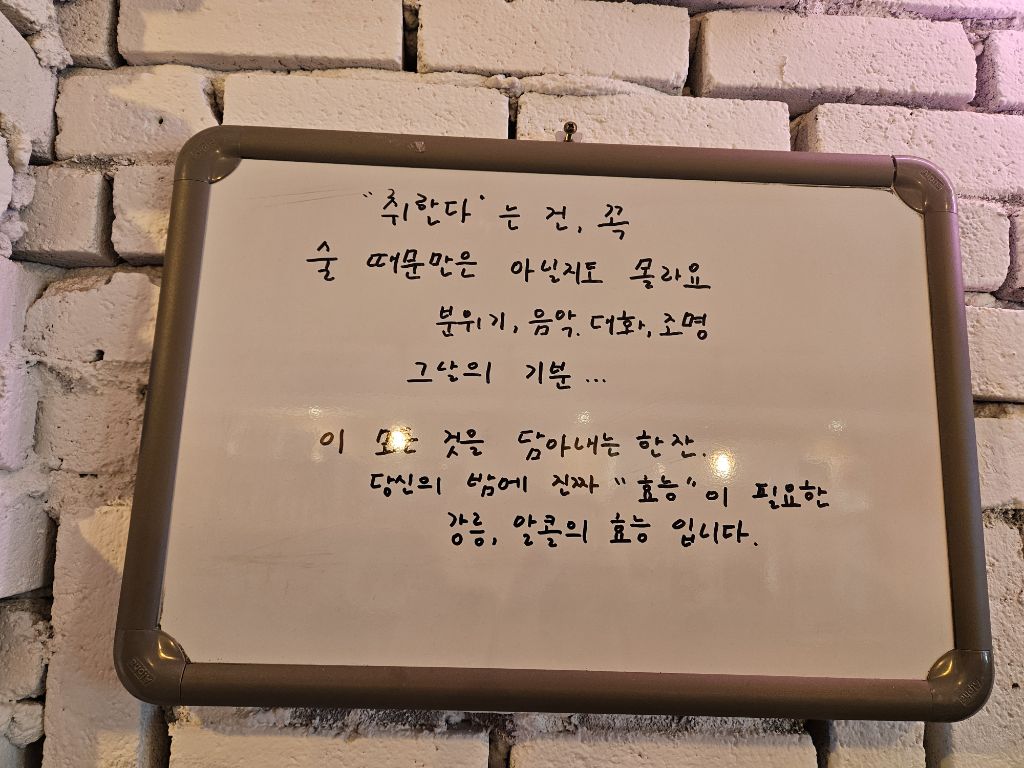 "취한다"는 건, 꼭
술 때문만은 아닐지도 몰라요
분위기, 음악, 대화, 조명
그날의 기분...
이 모든 것을 담아내는 한 잔.
당신의 밤에 진짜 "효능"이 필요한
강릉, 알콜의 효능 입니다.